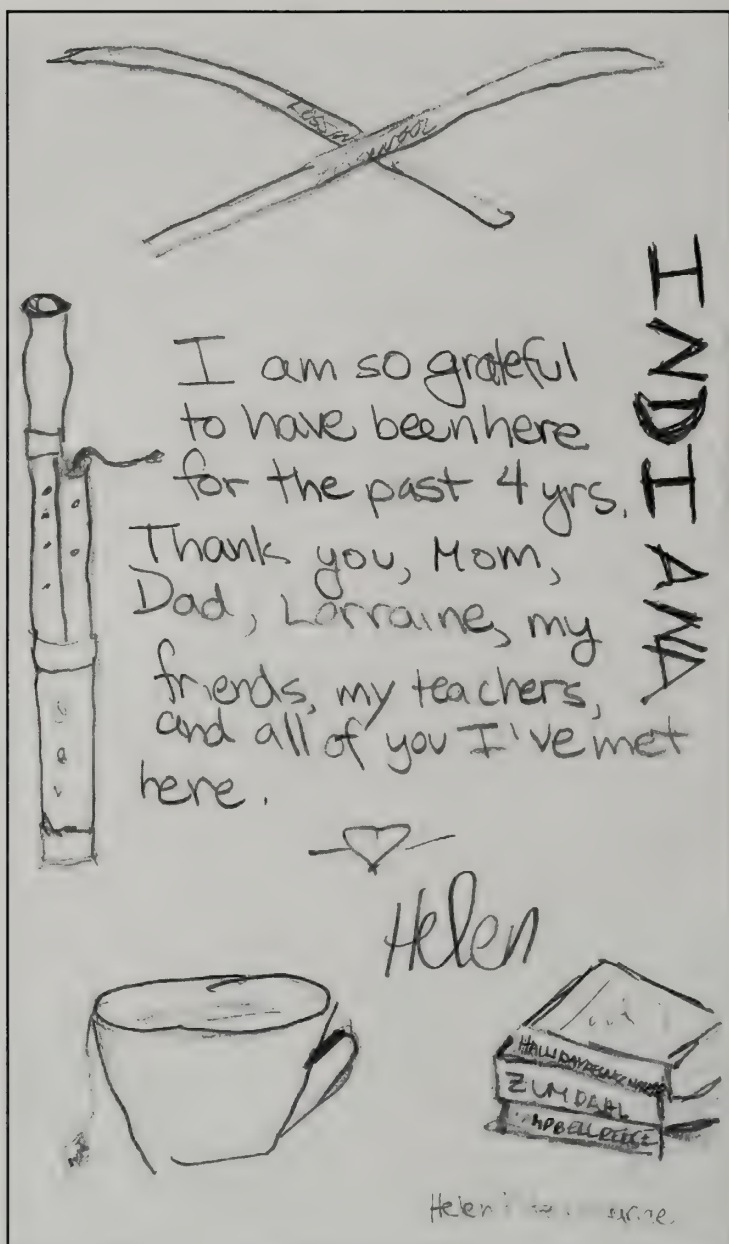 I am so grateful
to have been here
for the past 4 yrs.
Thank you, Mom,
Dad, Lorraine, my
friends, my teachers,
and all of you I've met
here.
Helen
INDIANA
ZUMDAHL
Helen